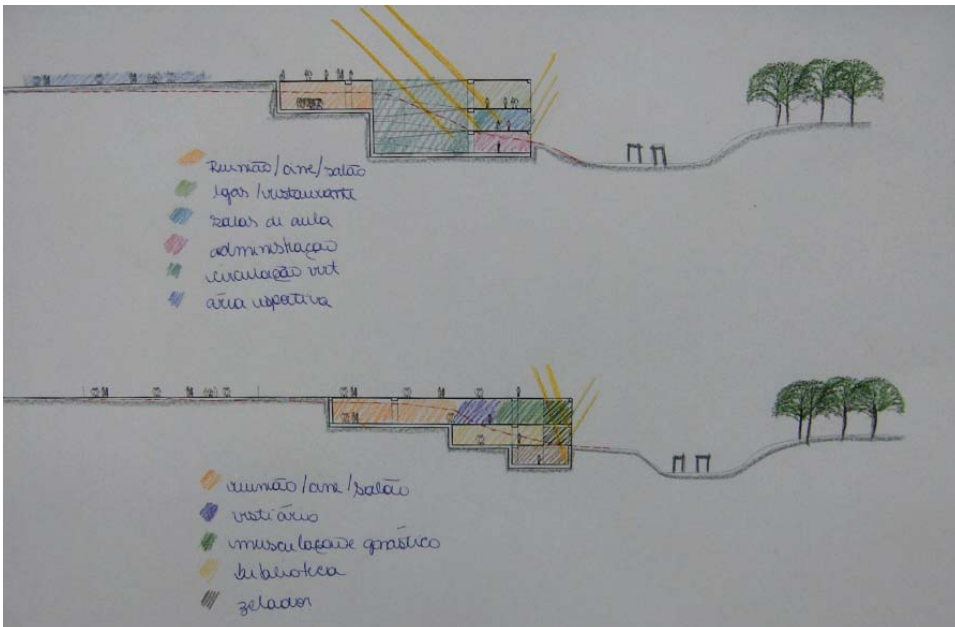 reunião/cine/salão
lojas/restaurante
salas de aula
administração
circulação vert
área esportiva
reunião/cine/salão
vestiário
musculação e ginástica
biblioteca
zelador